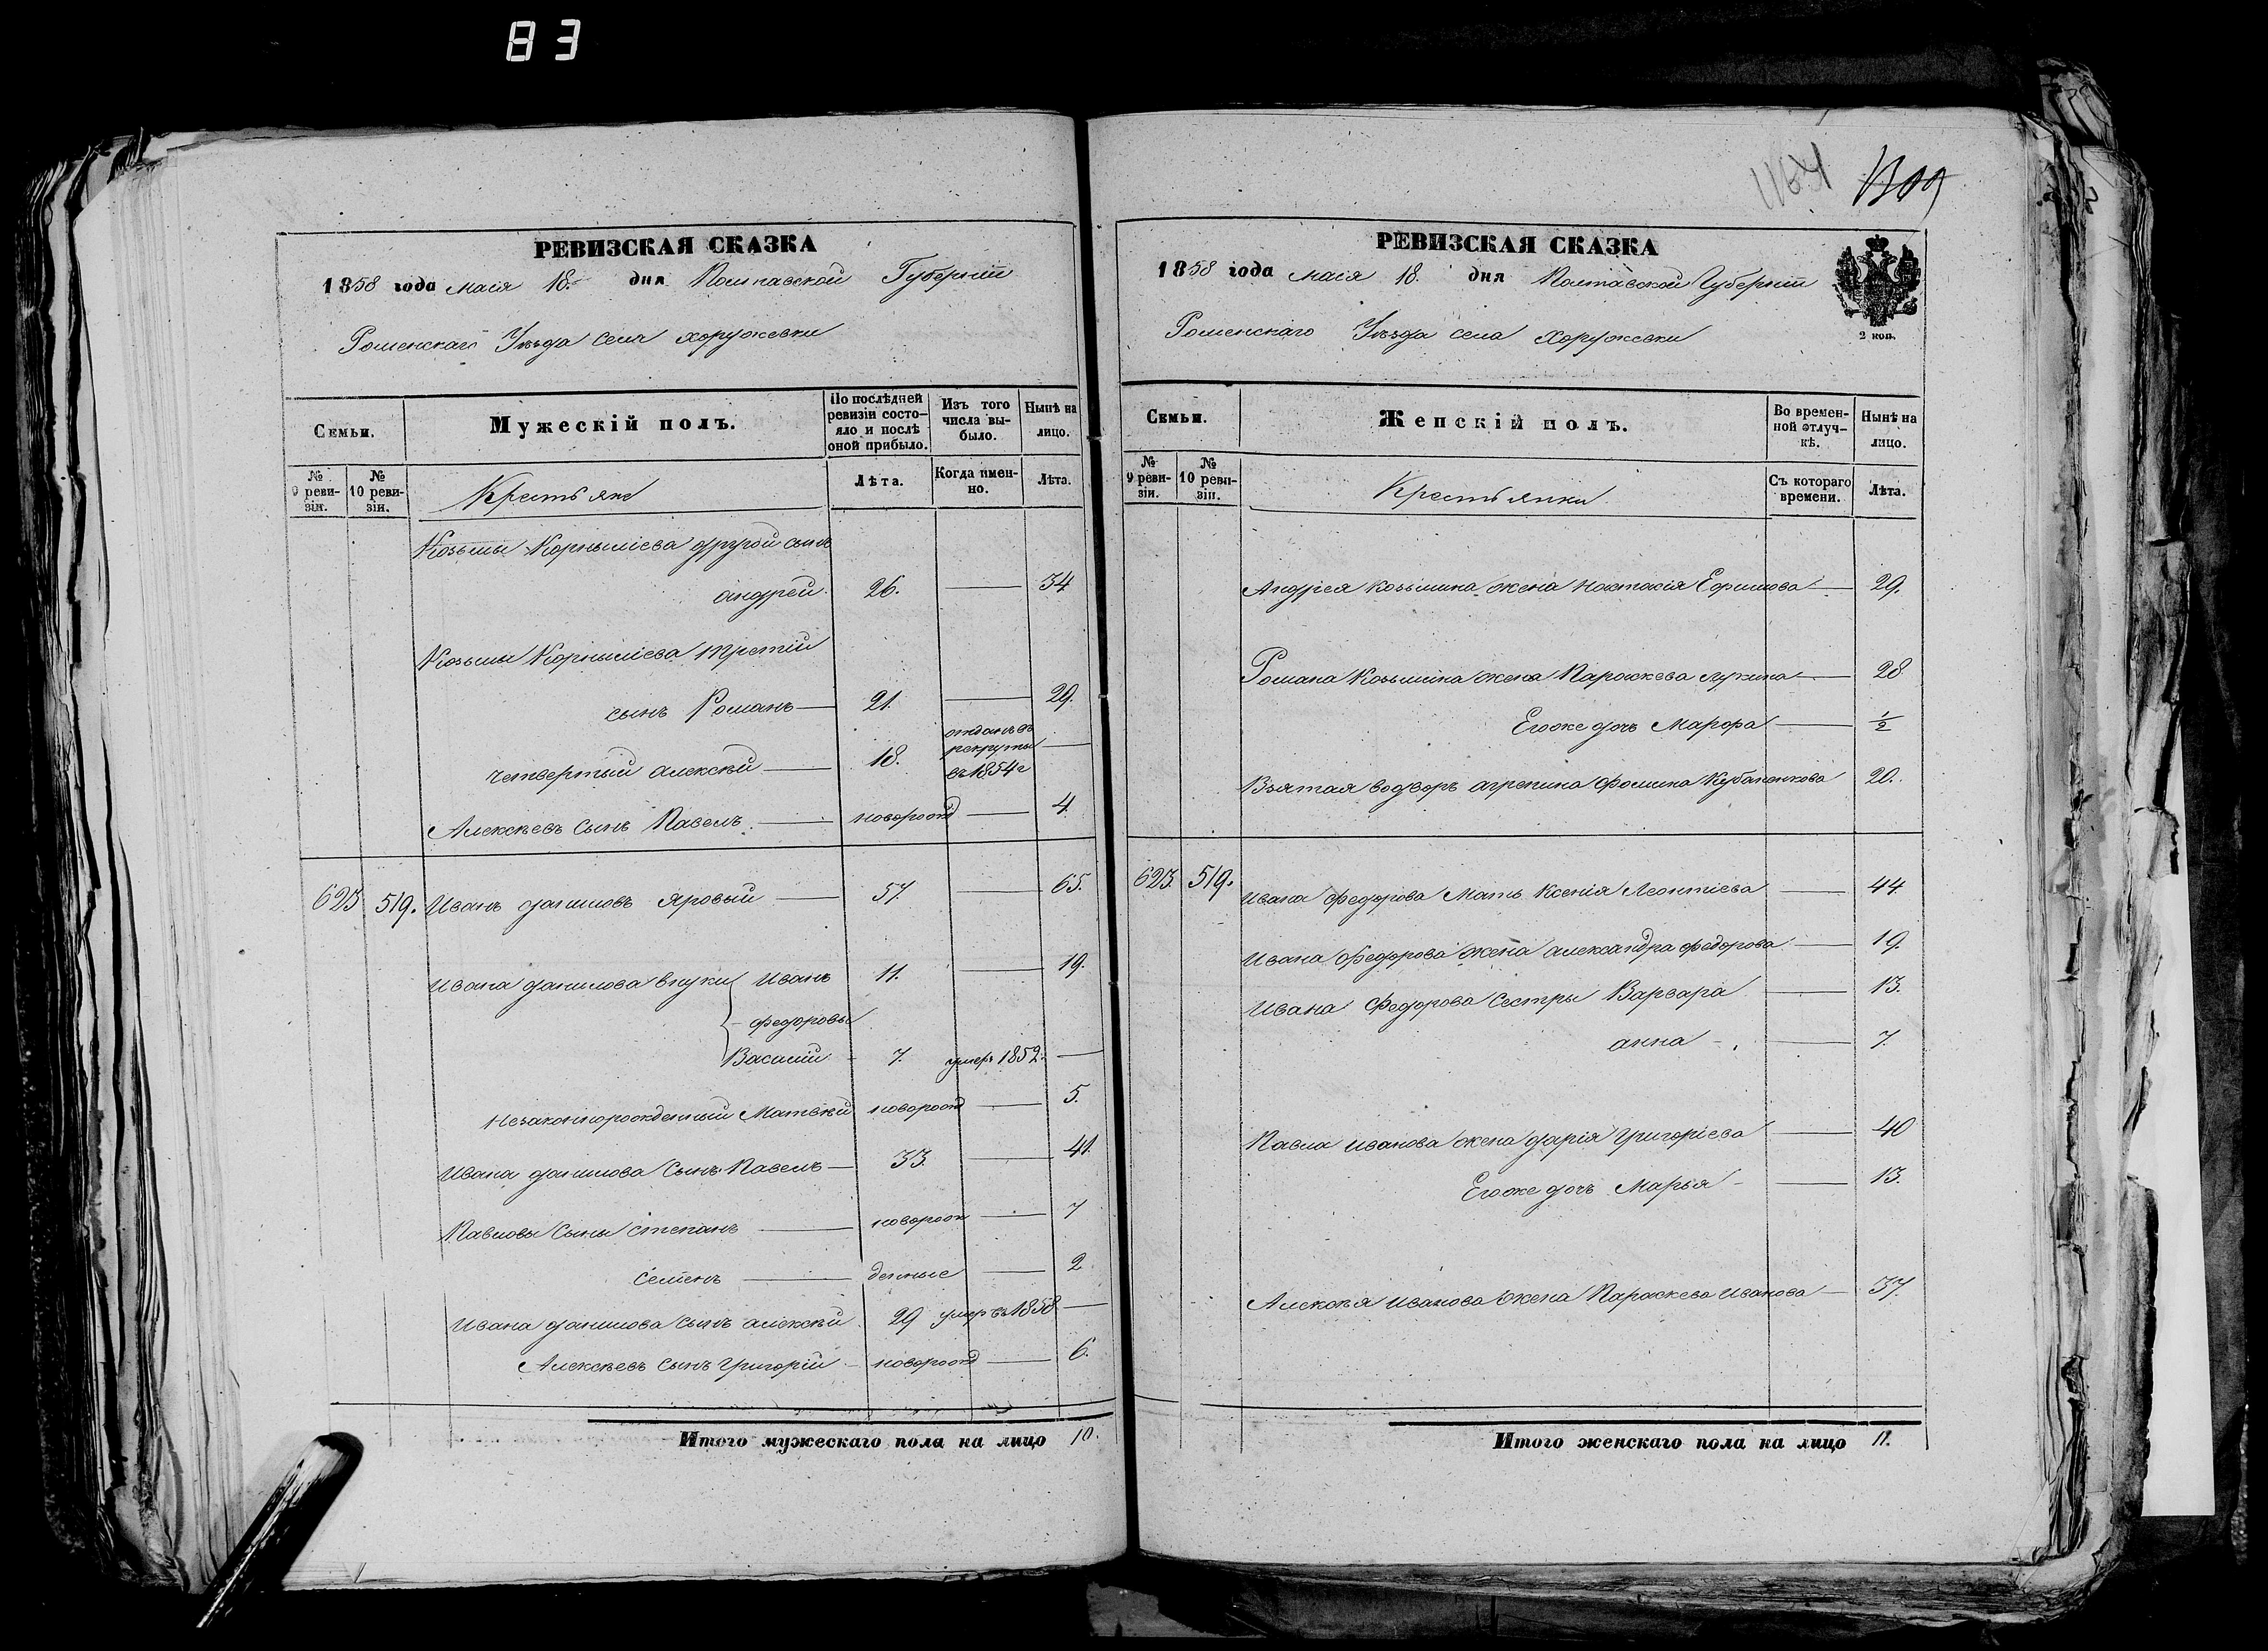 83
РЕВИЗСКАЯ СКАЗКА
1858 года мая 18. дня Полтавской Губерніи
Роменскаго Уѣзда села хоружевки
Семьи.
Мужескій полъ.
По послѣдней ревизіи состояло и послѣ оной прибыло.
Изъ того числа выбыло.
Нынѣ на лицо.
№ 9 ревизіи.
№ 10 ревизіи.
Крестьяне
Лѣта.
Когда именно.
Лѣта.
Козьмы Корныліева другой сынъ
андрей. 26. — 34
Козьмы Корныліева третій
сынъ Романъ — 21. — 29.
четвертый алексѣй — 18. отданъ въ рекруты въ 1854 г —
Алексѣевъ сынъ Павелъ — новорожд — 4.
623 519. Иванъ даниловъ Яровый — 57. — 65.
Ивана данилова внуки Иванъ 11. — 19.
федоровы
Василий 7. умеръ 1852. —
Незаконнорожденный Матвѣй новорожд — 5.
Ивана данилова Сынъ Павелъ — 33. — 41.
Павловы Сыны степанъ — новорож — 7
Семенъ — денные — 2
Ивана данилова сынъ алексѣй 29 умеръ въ 1858 —
Алексѣевъ сынъ григорій — новорожд — 6.
Итого мужескаго пола на лицо 10.
1164 1309
РЕВИЗСКАЯ СКАЗКА
1858 года мая 18. дня Полтавской Губерніи
Роменскаго Уѣзда села Хоружевки
2 коп.
Семьи.
Женскій полъ.
Во временной отлучкѣ.
Нынѣ на лицо.
№ 9 ревизіи.
№ 10 ревизіи.
Крестьянки
Съ котораго времени.
Лѣта.
Андрея козьмина жена Настасія Ефимова — 29.
Романа Козьмина жена Параскева лукина — 28
Егоже дочь Марфа — ½
Взятая водворъ агрепина фомина Кубаненкова 20.
623. 519. Ивана федорова Мать Ксенія Леонтіева — 44
Ивана федорова жена александра федорова — 19.
Ивана федорова сестры Варвара — 13.
анна — 7.
Павла иванова жена дарія григоріева — 40
Егоже дочь Марья — 13.
Алексѣя иванова жена Параскева иванова — 37.
Итого женскаго пола на лицо 11.